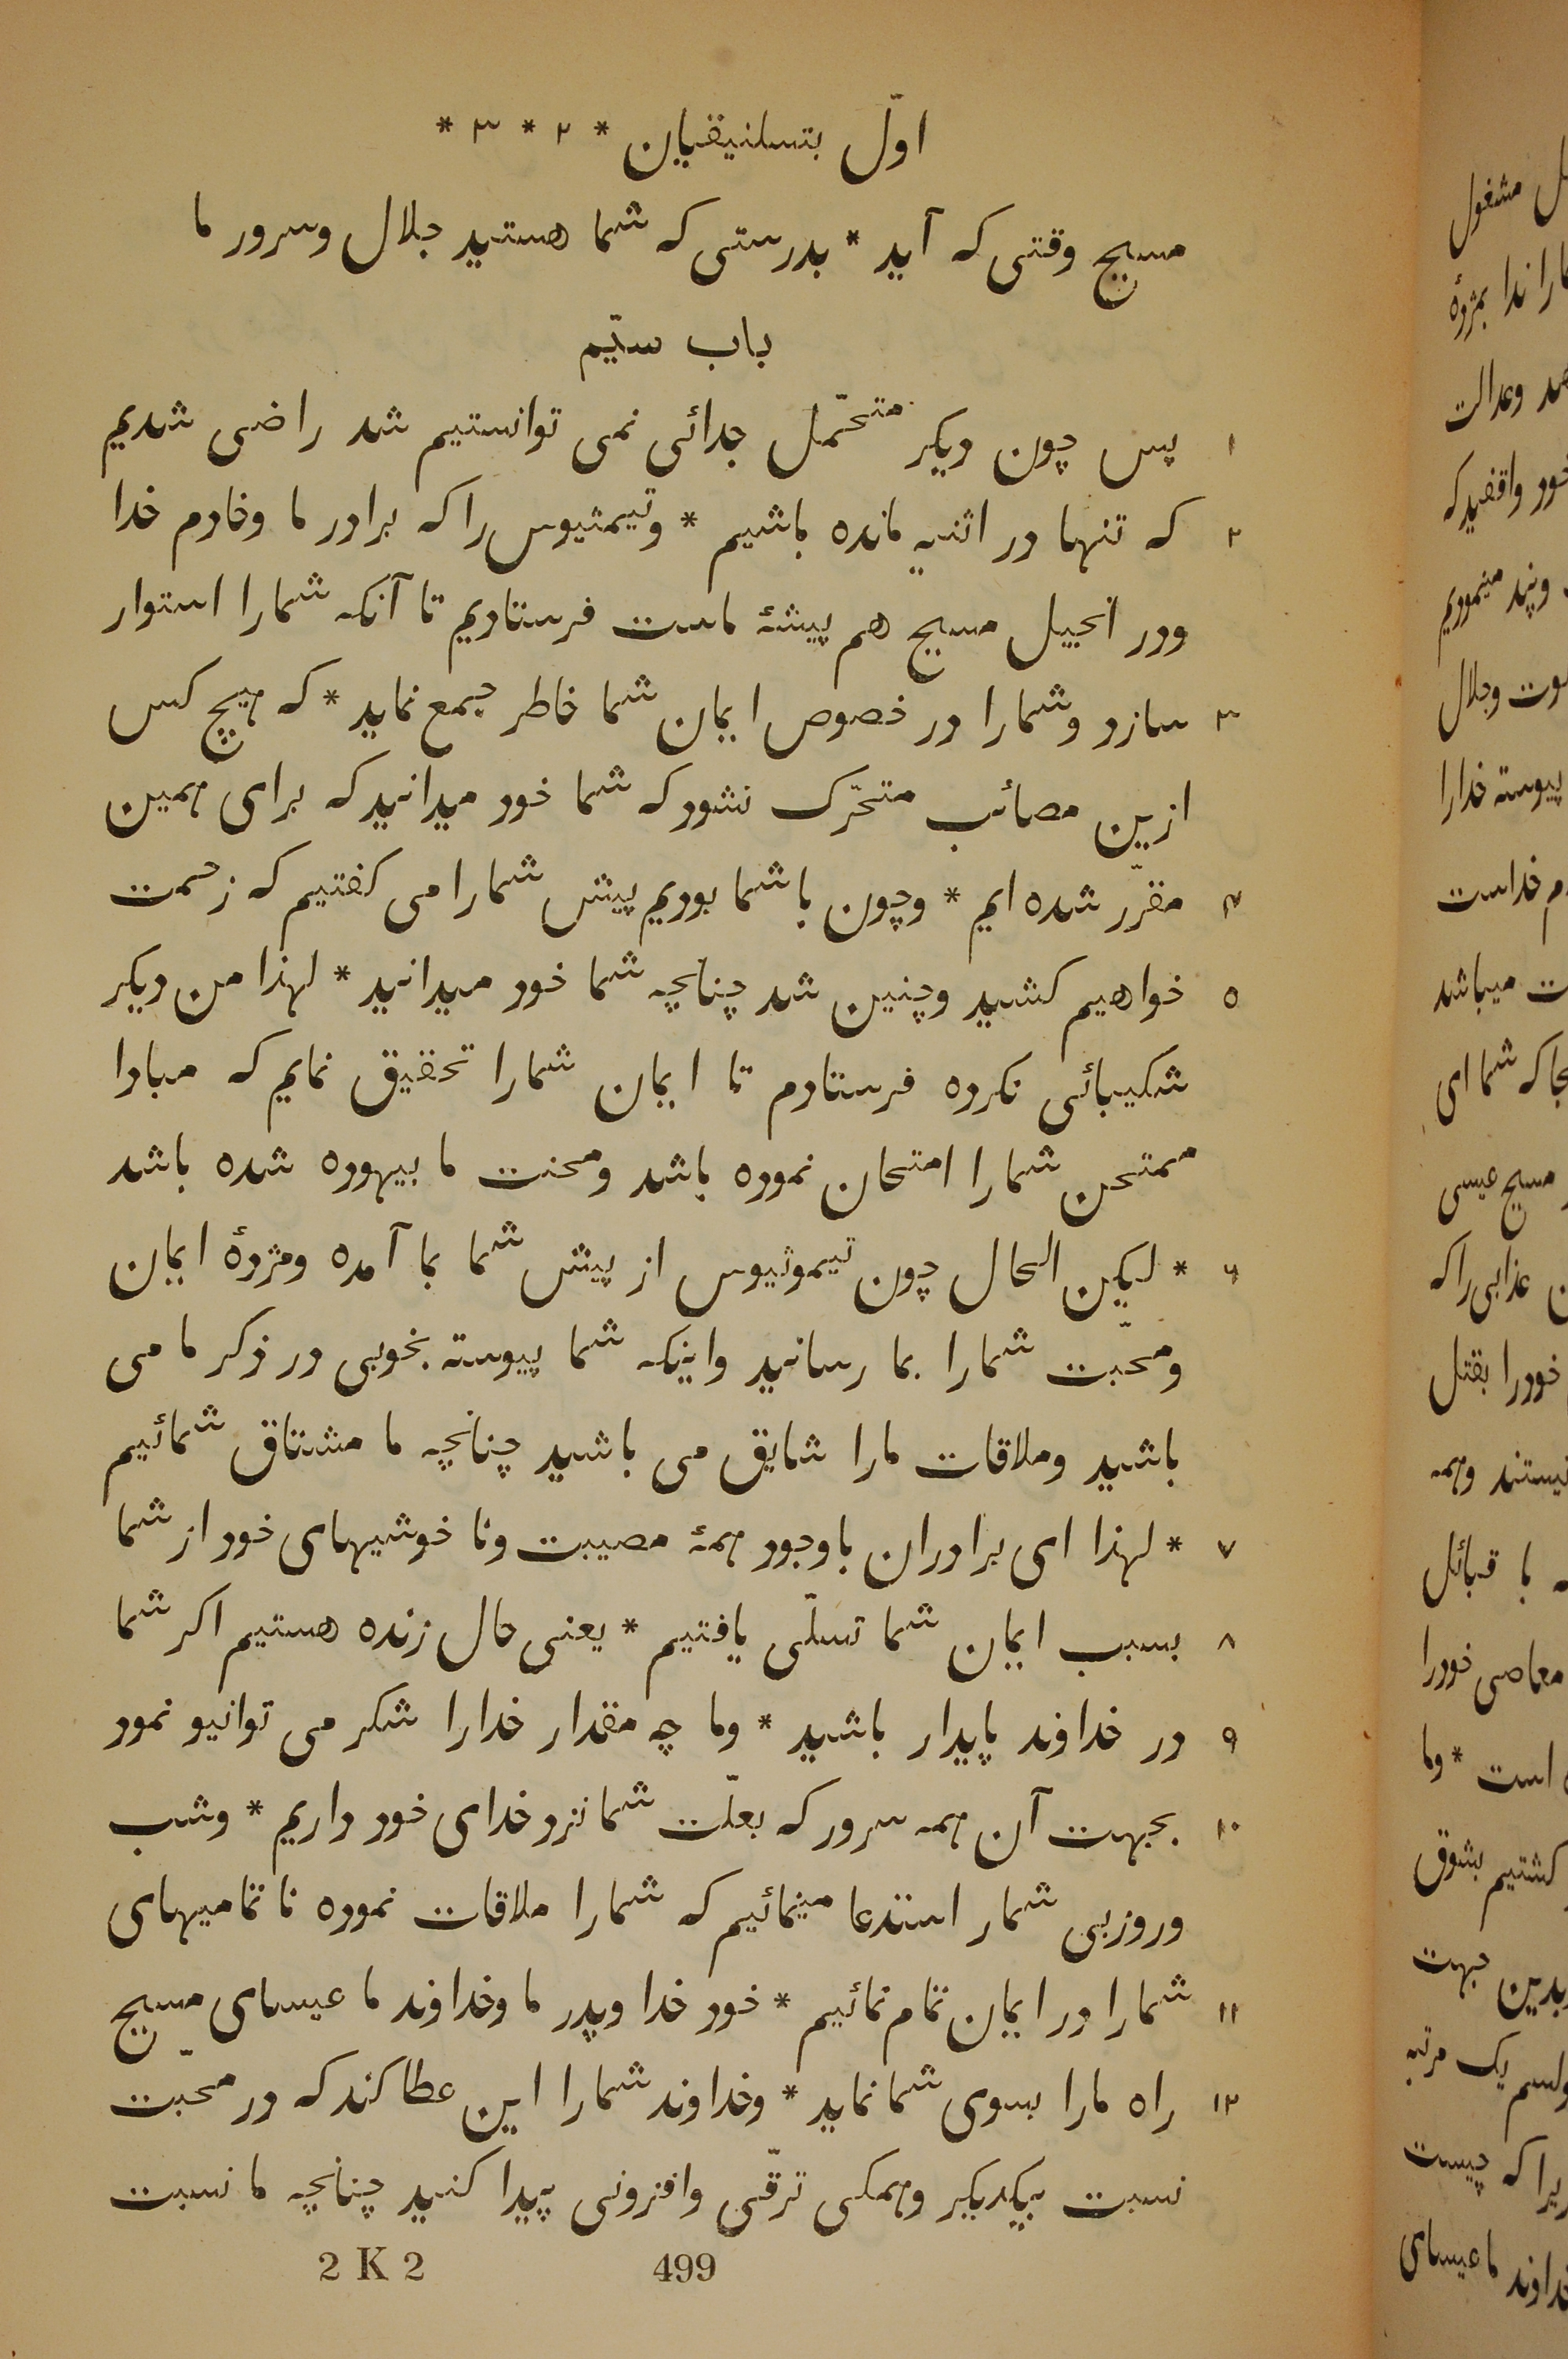 اوّل بتسلنیقیان * ۲ * ۳ *
مسیح وقتی که آید * بدرستی که شما هستید جلال وسرور ما
باب سیّم
۱ پس چون دیکر متحمّل جدائی نمی توانستیم شد راضی شدیم
۲ که تنها در اثنیه مانده باشیم * وتیمثیوس را که برادر ما وخادم خدا
ودر انجیل مسیح هم پیشهٔ ماست فرستادیم تا آنکه شمارا استوار
۳ سازد وشمارا در خصوص ایمان شما خاطر جمع نماید * که هیچ کس
ازین مصائب متحرّک نشود که شما خود میدانید که برای همین
۴ مقرّر شده ایم * وچون با شما بودیم پیش شمارا می کفتیم که زحمت
۵ خواهیم کشید وچنین شد چنانچه شما خود میدانید * لهذا من دیکر
شکیبائی نکرده فرستادم تا ایمان شمارا تحقیق نمایم که مبادا
ممتحن شمارا امتحان نموده باشد ومحنت ما بیهوده شده باشد
۶ * لیکن الحال چون تیموثیوس از پیش شما بما آمده ومژدهٔ ایمان
ومحبّت شمارا بما رسانید واینکه شما پیوسته بخوبی در ذکر ما می
باشید وملاقات مارا شایق می باشید چنانچه ما مشتاق شمائیم
۷ * لهذا ای برادران با وجود همهٔ مصیبت ونا خوشیهای خود از شما
۸ بسبب ایمان شما تسلّی یافتیم * یعنی حال زنده هستیم اکر شما
۹ در خداوند پایدار باشید * وما چه مقدار خدارا شکر می توانیو نمود
۱۰ بجهت آن همه سرور که بعلّت شما نزد خدای خود داریم * وشب
وروز بی شمار استدعا مینمائیم که شمارا ملاقات نموده نا تمامیهای
۱۱ شمارا در ایمان تمام نمائیم * خود خدا وپدر ما وخداوند ما عیسای مسیح
۱۲ راه مارا بسوی شما نماید * وخداوند شمارا این عطا کند که در محبّت
نسبت بیکدیکر وهمکی ترقّی وافزونی پیدا کنید چنانچه ما نسبت
2 K 2 499
مشغول
بمژدهٔ
وعدالت
واقفید که
وپند مینمودیم
وجلال
پیوسته خدارا
خداست
میباشد
که شما ای
مسیح عیسی
عذابی را که
خودرا بقتل
نیستند وهمه
با قبائل
معاصی خودرا
است * وما
کشتیم بشوق
بدین جهت
یک مرتبه
که چیست
خداوند ما عیسای